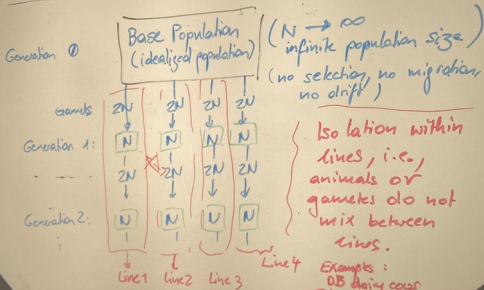 Base Population
(idealized population)
(N → ∞
infinite population size)
(no selection, no migration,
no drift)
Generation 0
Gamets 2N 2N 2N 2N
Generation 1: N N N N
2N 2N 2N 2N
Generation 2: N N N N
Line 1 Line 2 Line 3 Line 4
Isolation within
lines, i.e.,
animals or
gametes do not
mix between
lines.
Examples:
DB dairy cows